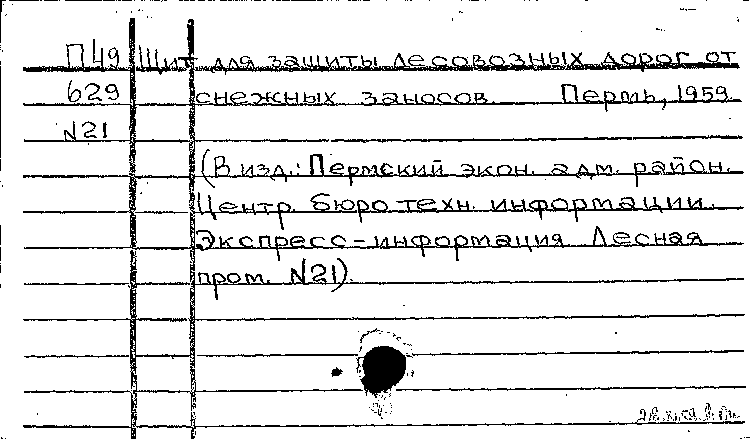 П49 Щит для защиты лесовозных дорог от
629 снежных заносов. Пермь, 1959.
N21
(В изд.: Пермский экон. адм. район.
Центр. бюро техн. информации.
Экспресс-информация Лесная
пром. N21).